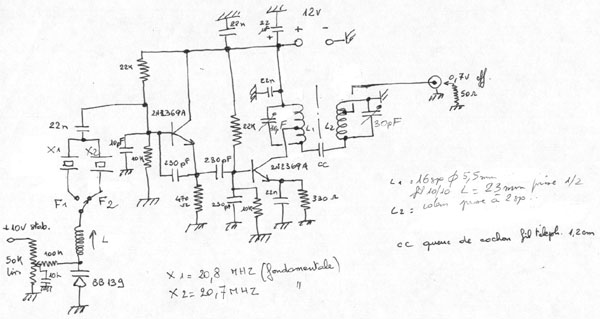 22n
22
µF
12V
+
+ -
22K
2N2369A
22n
0,7V eff.
50Ω
22n
X1
X2
10pF
10K
22K
L1
L2
30pF
230pF
230pF
2N2369A
CC
F1
F2
470
Ω
230pF
10K
22n
330
Ω
L1 = 16sp φ 5,5mm
fil 10/10 L = 23mm prise 1/2
L2 = idem prise à 2sp..
+10V stab.
50K
lin.
100K
10n
L
BB139
X1 = 20,8 MHZ (fondamentale)
X2 = 20,7 MHZ "
CC queue de cochon fil teleph. 1,2cm